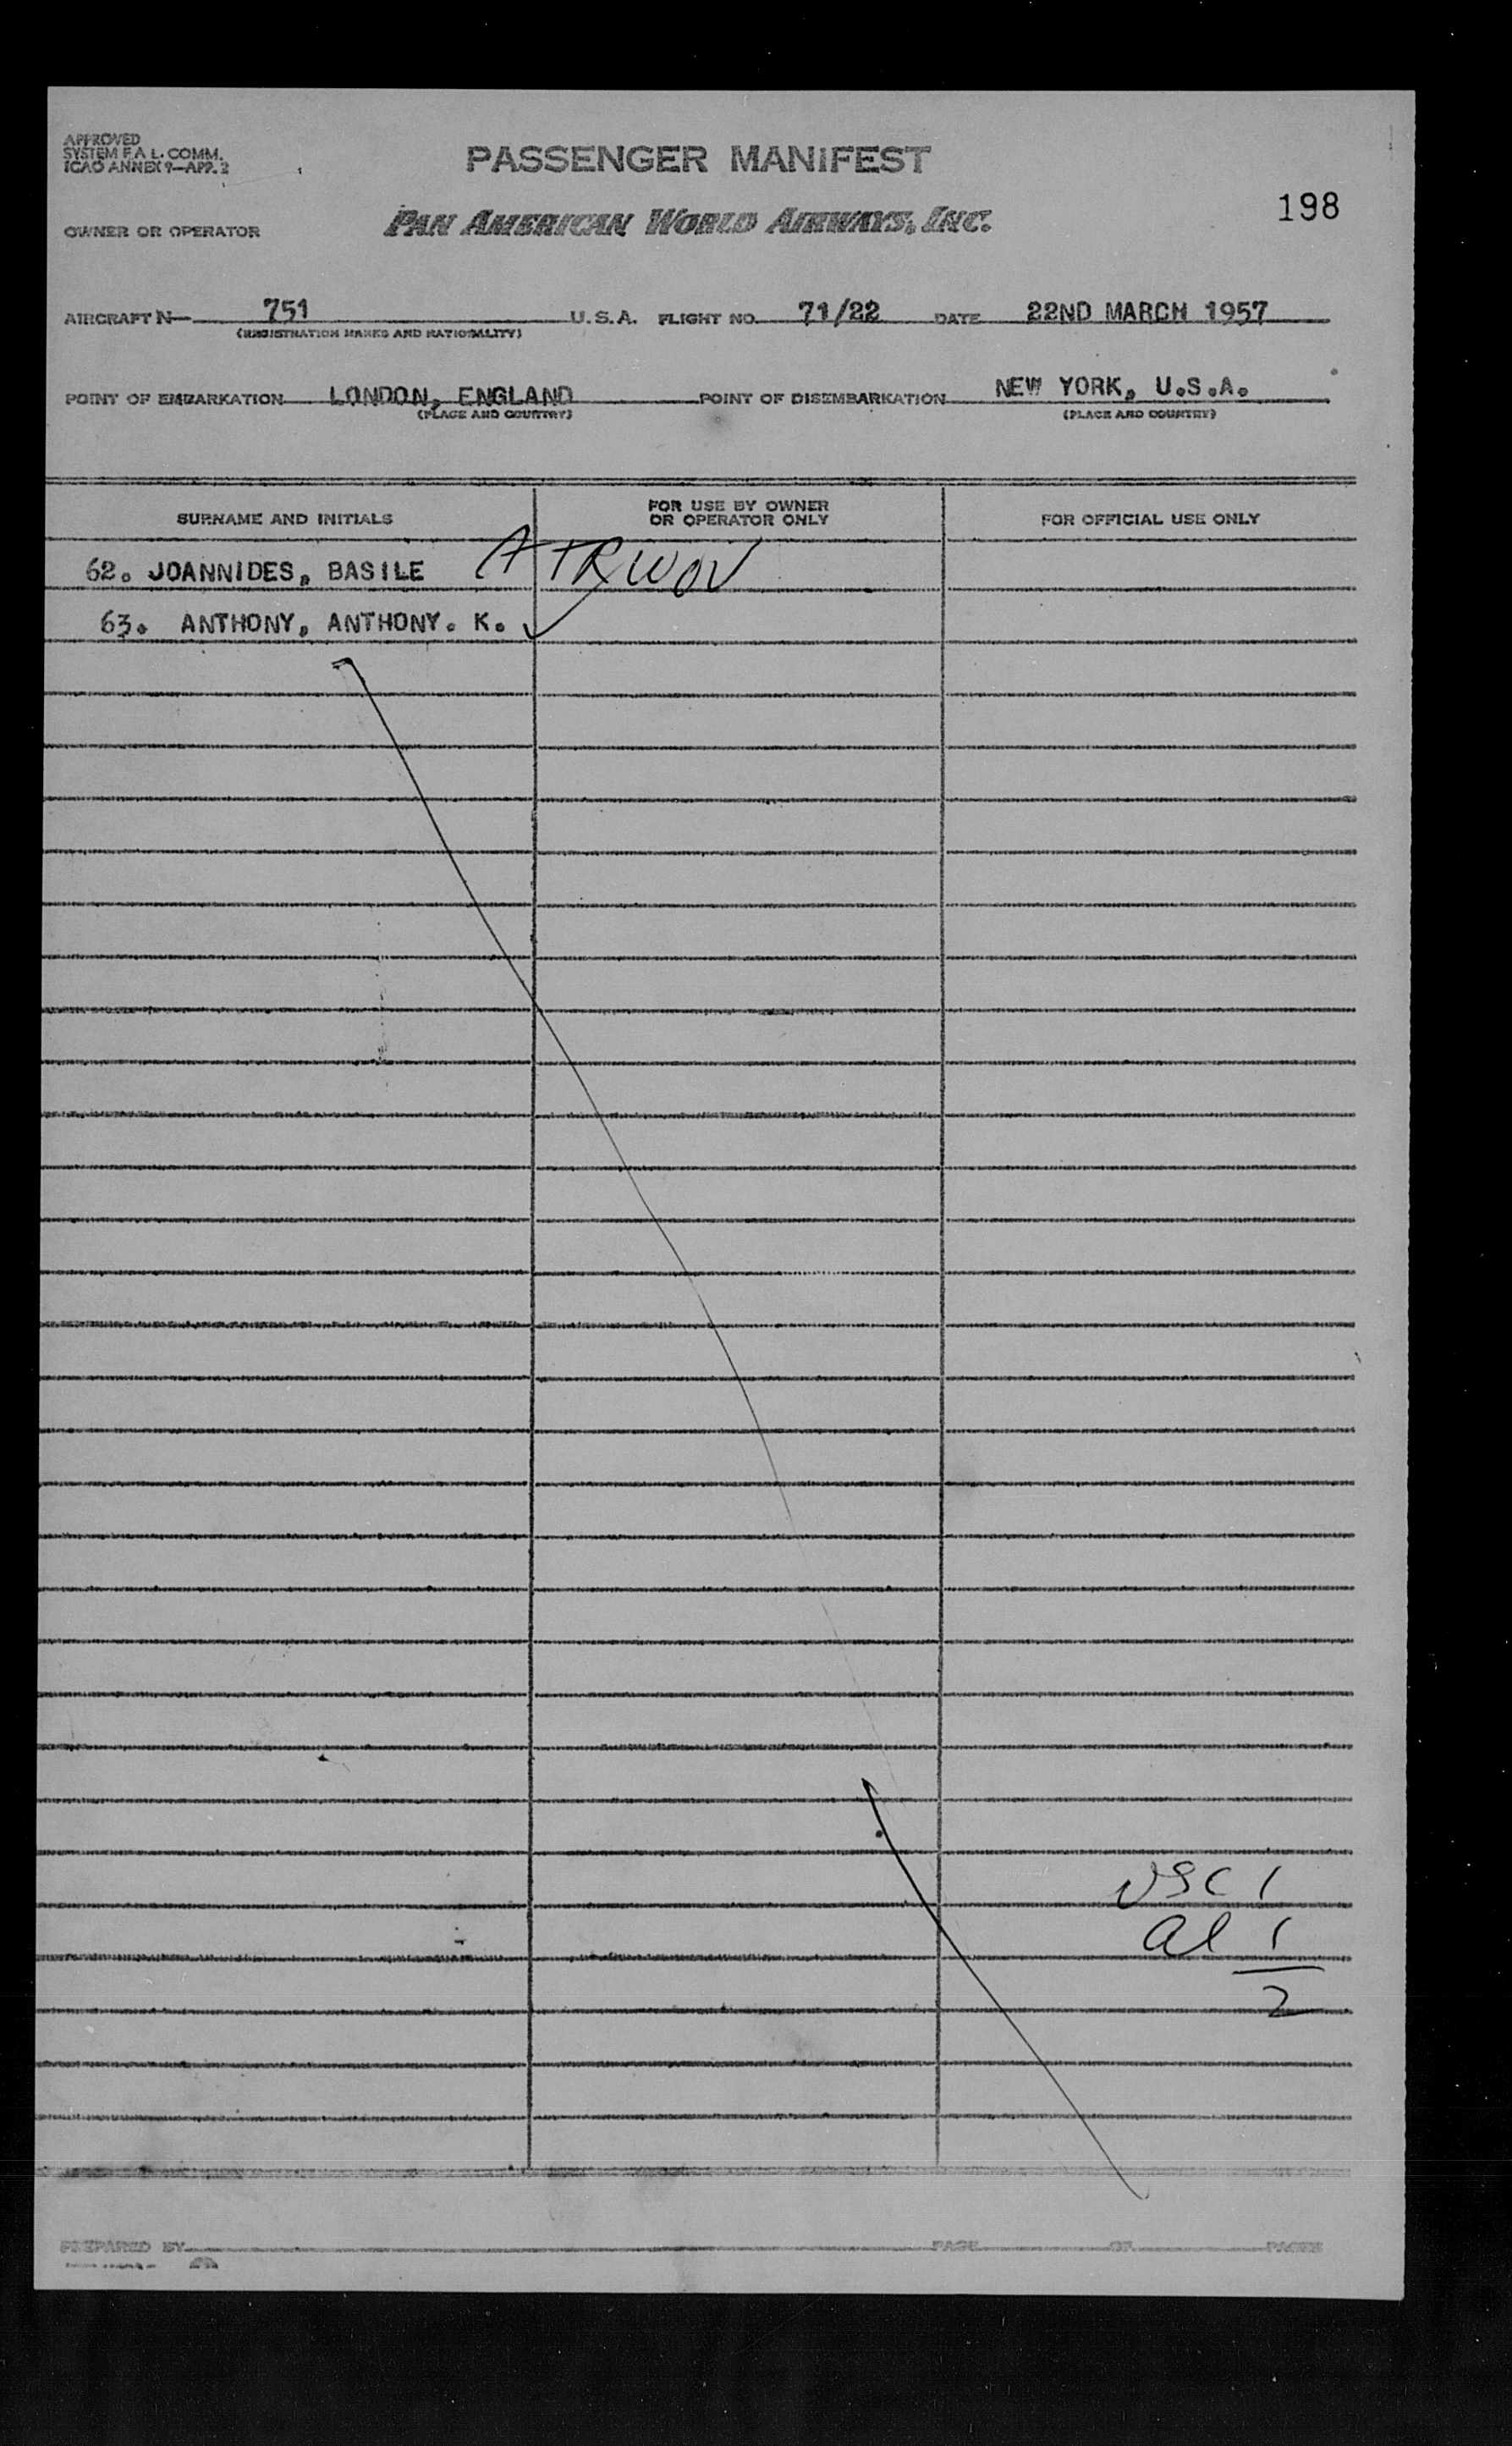 APPROVED
SYSTEM F.A L. COMM.
ICAO ANNEX 9—APP. 2
PASSENGER MANIFEST
198
OWNER OR OPERATOR PAN AMERICAN WORLD AIRWAYS, INC.
AIRCRAFT N— 751 U.S.A. FLIGHT NO. 71/22 DATE 22ND MARCH 1957
(REGISTRATION MARKS AND NATIONALITY)
POINT OF EMBARKATION LONDON, ENGLAND POINT OF DISEMBARKATION NEW YORK, U.S.A.
(PLACE AND COUNTRY) (PLACE AND COUNTRY)
SURNAME AND INITIALS FOR USE BY OWNER OR OPERATOR ONLY FOR OFFICIAL USE ONLY
62. JOANNIDES, BASILE A
63. ANTHONY, ANTHONY. K.
USC 1
al 1
2
PREPARED BY PAGE OF PAGES